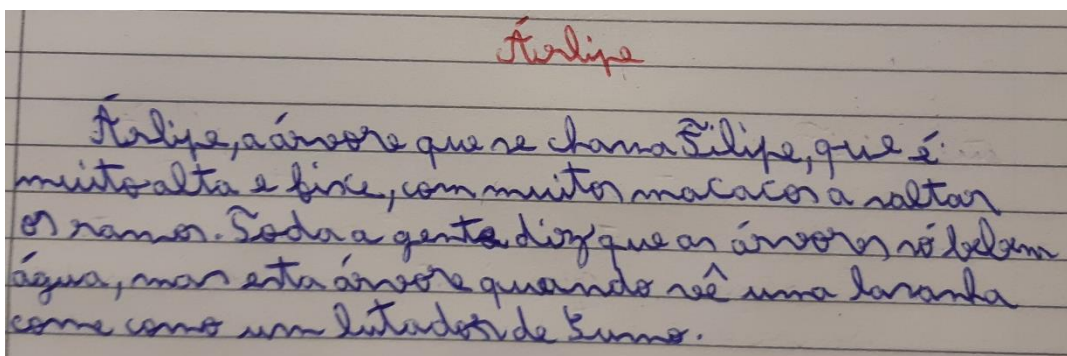 Árlipe
Árlipe, a árvore que se chama Filipe, que é
muito alta e fixe, com muitos macacos a saltar
os ramos. Toda a gente diz que as árvores só bebem
água, mas esta árvore quando vê uma laranha
come como um lutador de Sumo.